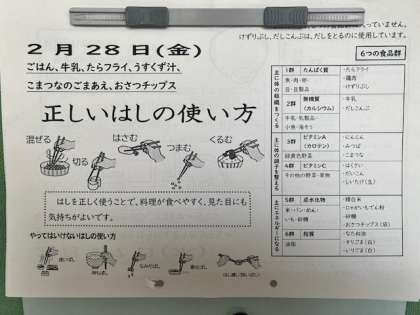 入っていません。
けずりぶし、だしこんぶは、だしをとるのに使用しています。
2月28日(金)
ごはん、牛乳、たらフライ、うすくず汁、
こまつなのごまあえ、おさつチップス
正しいはしの使い方
混ぜる
切る
はさむ
つまむ
くるむ
はしを正しく使うことで、料理が食べやすく、見た目にも
気持ちがよいです。
やってはいけないはしの使い方
6つの食品群
主に体の組織をつくる
1群 たんぱく質
魚・肉・卵・
豆・豆製品
・たらフライ
・鶏肉
・けずりぶし
2群 無機質
(カルシウム)
牛乳・乳製品・
小魚・海そう
・牛乳
・だしこんぶ
主に体の調子を整える
3群 ビタミンA
(カロテン)
緑黄色野菜
・にんじん
・みつば
・こまつな
4群 ビタミンC
その他の野菜・果物
・はくさい
・だいこん
・しいたけ(生)
主にエネルギーになる
5群 炭水化物
米・パン・めん・
いも・砂糖
・精白米
・じゃがいもでん粉
・砂糖
・おさつチップス(店)
6群 脂質
油脂
・なたね油
・すりごま(白)
・いりごま(白)